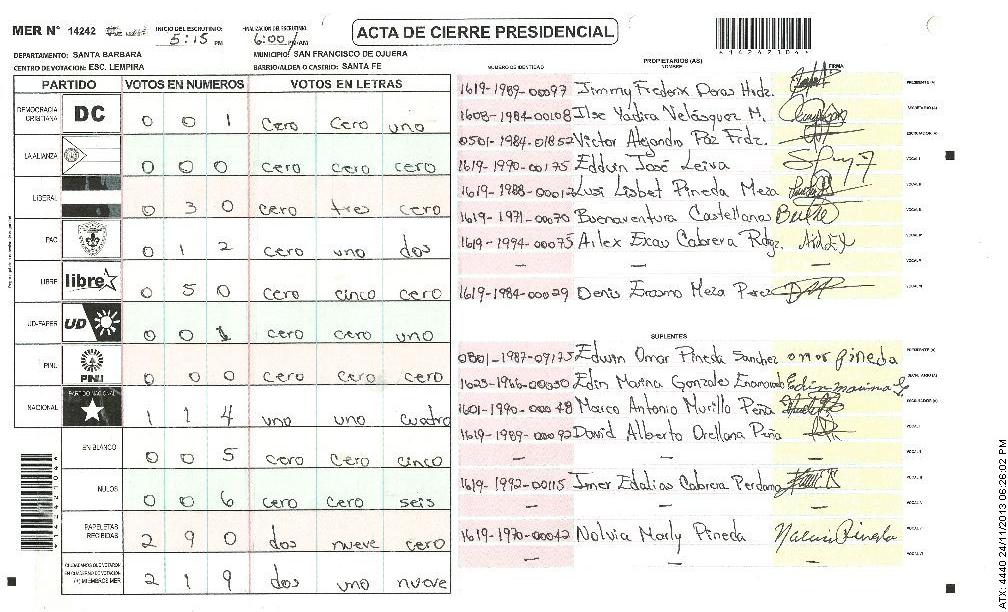 MER N° 14242 INICIO DEL ESCRUTINIO: 5:15 PM FINALIZACION DEL ESCRUTINIO: 6:00 PM/AM ACTA DE CIERRE PRESIDENCIAL
DEPARTAMENTO: SANTA BARBARA MUNICIPIO: SAN FRANCISCO DE OJUERA
CENTRO DE VOTACION: ESC. LEMPIRA BARRIO/ALDEA O CASERIO: SANTA FE
PARTIDO VOTOS EN NUMEROS VOTOS EN LETRAS
DEMOCRACIA CRISTIANA DC 0 0 1 cero cero uno
LA ALIANZA 0 0 0 cero cero cero
LIBERAL 0 3 0 cero tres cero
PAC 0 1 2 cero uno dos
LIBRE libre 0 5 0 cero cinco cero
UD-FAPER UD 0 0 1 cero cero uno
PINU PINU 0 0 0 cero cero cero
NACIONAL PARTIDO NACIONAL 1 1 4 uno uno cuatro
EN BLANCO 0 0 5 cero cero cinco
NULOS 0 0 6 cero cero seis
PAPELETAS RECIBIDAS 2 9 0 dos nueve cero
CIUDADANOS QUE VOTARON EN CUADERNO DE VOTACION (+) MIEMBROS MER 2 1 9 dos uno nueve
PROPIETARIOS (AS)
NUMERO DE IDENTIDAD NOMBRE FIRMA
1619-1989-00097 Jimmy Frederix Poras Hrdz. PRESIDENTE (A)
1608-1984-00108 Ilse Yadira Velásquez M. SECRETARIO (A)
0501-1984-01852 Victor Alejandro Paz Frdz. ESCRUTADOR (A)
1619-1990-00175 Edduin José Leiva VOCAL I
1619-1988-00012 Lusi Lisbet Pineda Meza VOCAL II
1619-1971-00070 Buenaventura Castellanos VOCAL III
1619-1994-00075 Arlex Exas Cabrera Rdgz. VOCAL IV
— — — VOCAL V
1619-1984-00029 Denis Erasmo Meza Perez VOCAL VI
SUPLENTES
0801-1987-07175 Edwin Omar Pineda Sanchez omar pineda PRESIDENTE (A)
1623-1966-00030 Edin Marina Gonzales Enamorado SECRETARIO (A)
1601-1990-00048 Marco Antonio Murillo Peña ESCRUTADOR (A)
1619-1989-00092 David Alberto Orellana Peña VOCAL I
— — — VOCAL II
1619-1992-00115 Imer Edalias Cabrera Perdomo VOCAL III
— — — VOCAL IV
1619-1970-00042 Nolvia Marly Pineda VOCAL V
— — — VOCAL VI
ATX: 4440 24/11/2013 06:26:02 PM